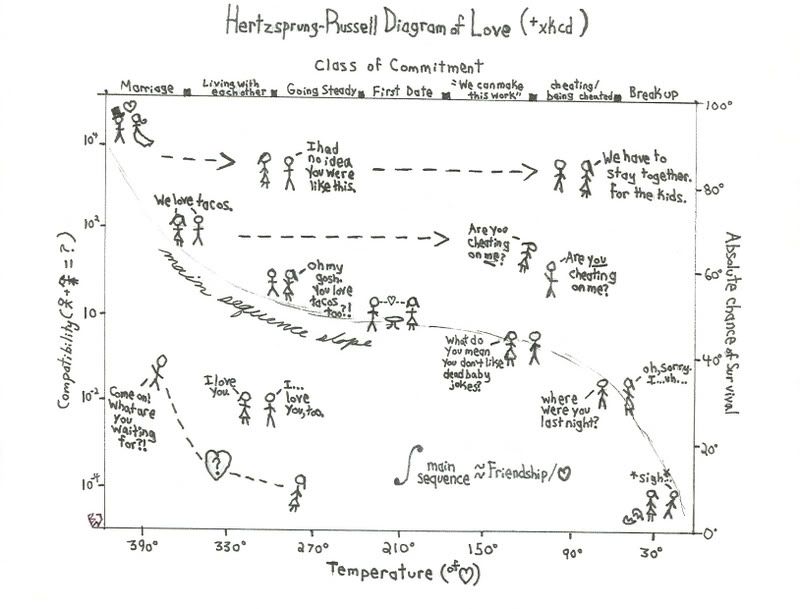 Hertzsprung-Russell Diagram of Love (+xkcd)
Class of Commitment
Marriage
Living with
each other
Going Steady
First Date
"We can make
this work"
cheating/
being cheated
Break up
100°
80°
60°
40°
20°
0°
Absolute chance of Survival
10⁴
10²
10
10⁻²
10⁻⁴
I had
no idea
you were
like this.
We have to
stay together.
for the kids.
We love tacos.
Are you
cheating
on me?
Are you
cheating
on me?
oh my
gosh.
You love
tacos
too?!
main sequence slope
What do
you mean
you don't like
dead baby
jokes?
where
were you
last night?
oh, sorry.
I...uh...
Come on!
What are
you
waiting
for?!
I love
you.
I...
love
you, too.
?
∫ main
sequence ≈ Friendship/♡
*sigh*
390°
330°
270°
210°
150°
90°
30°
Temperature (of ♡)